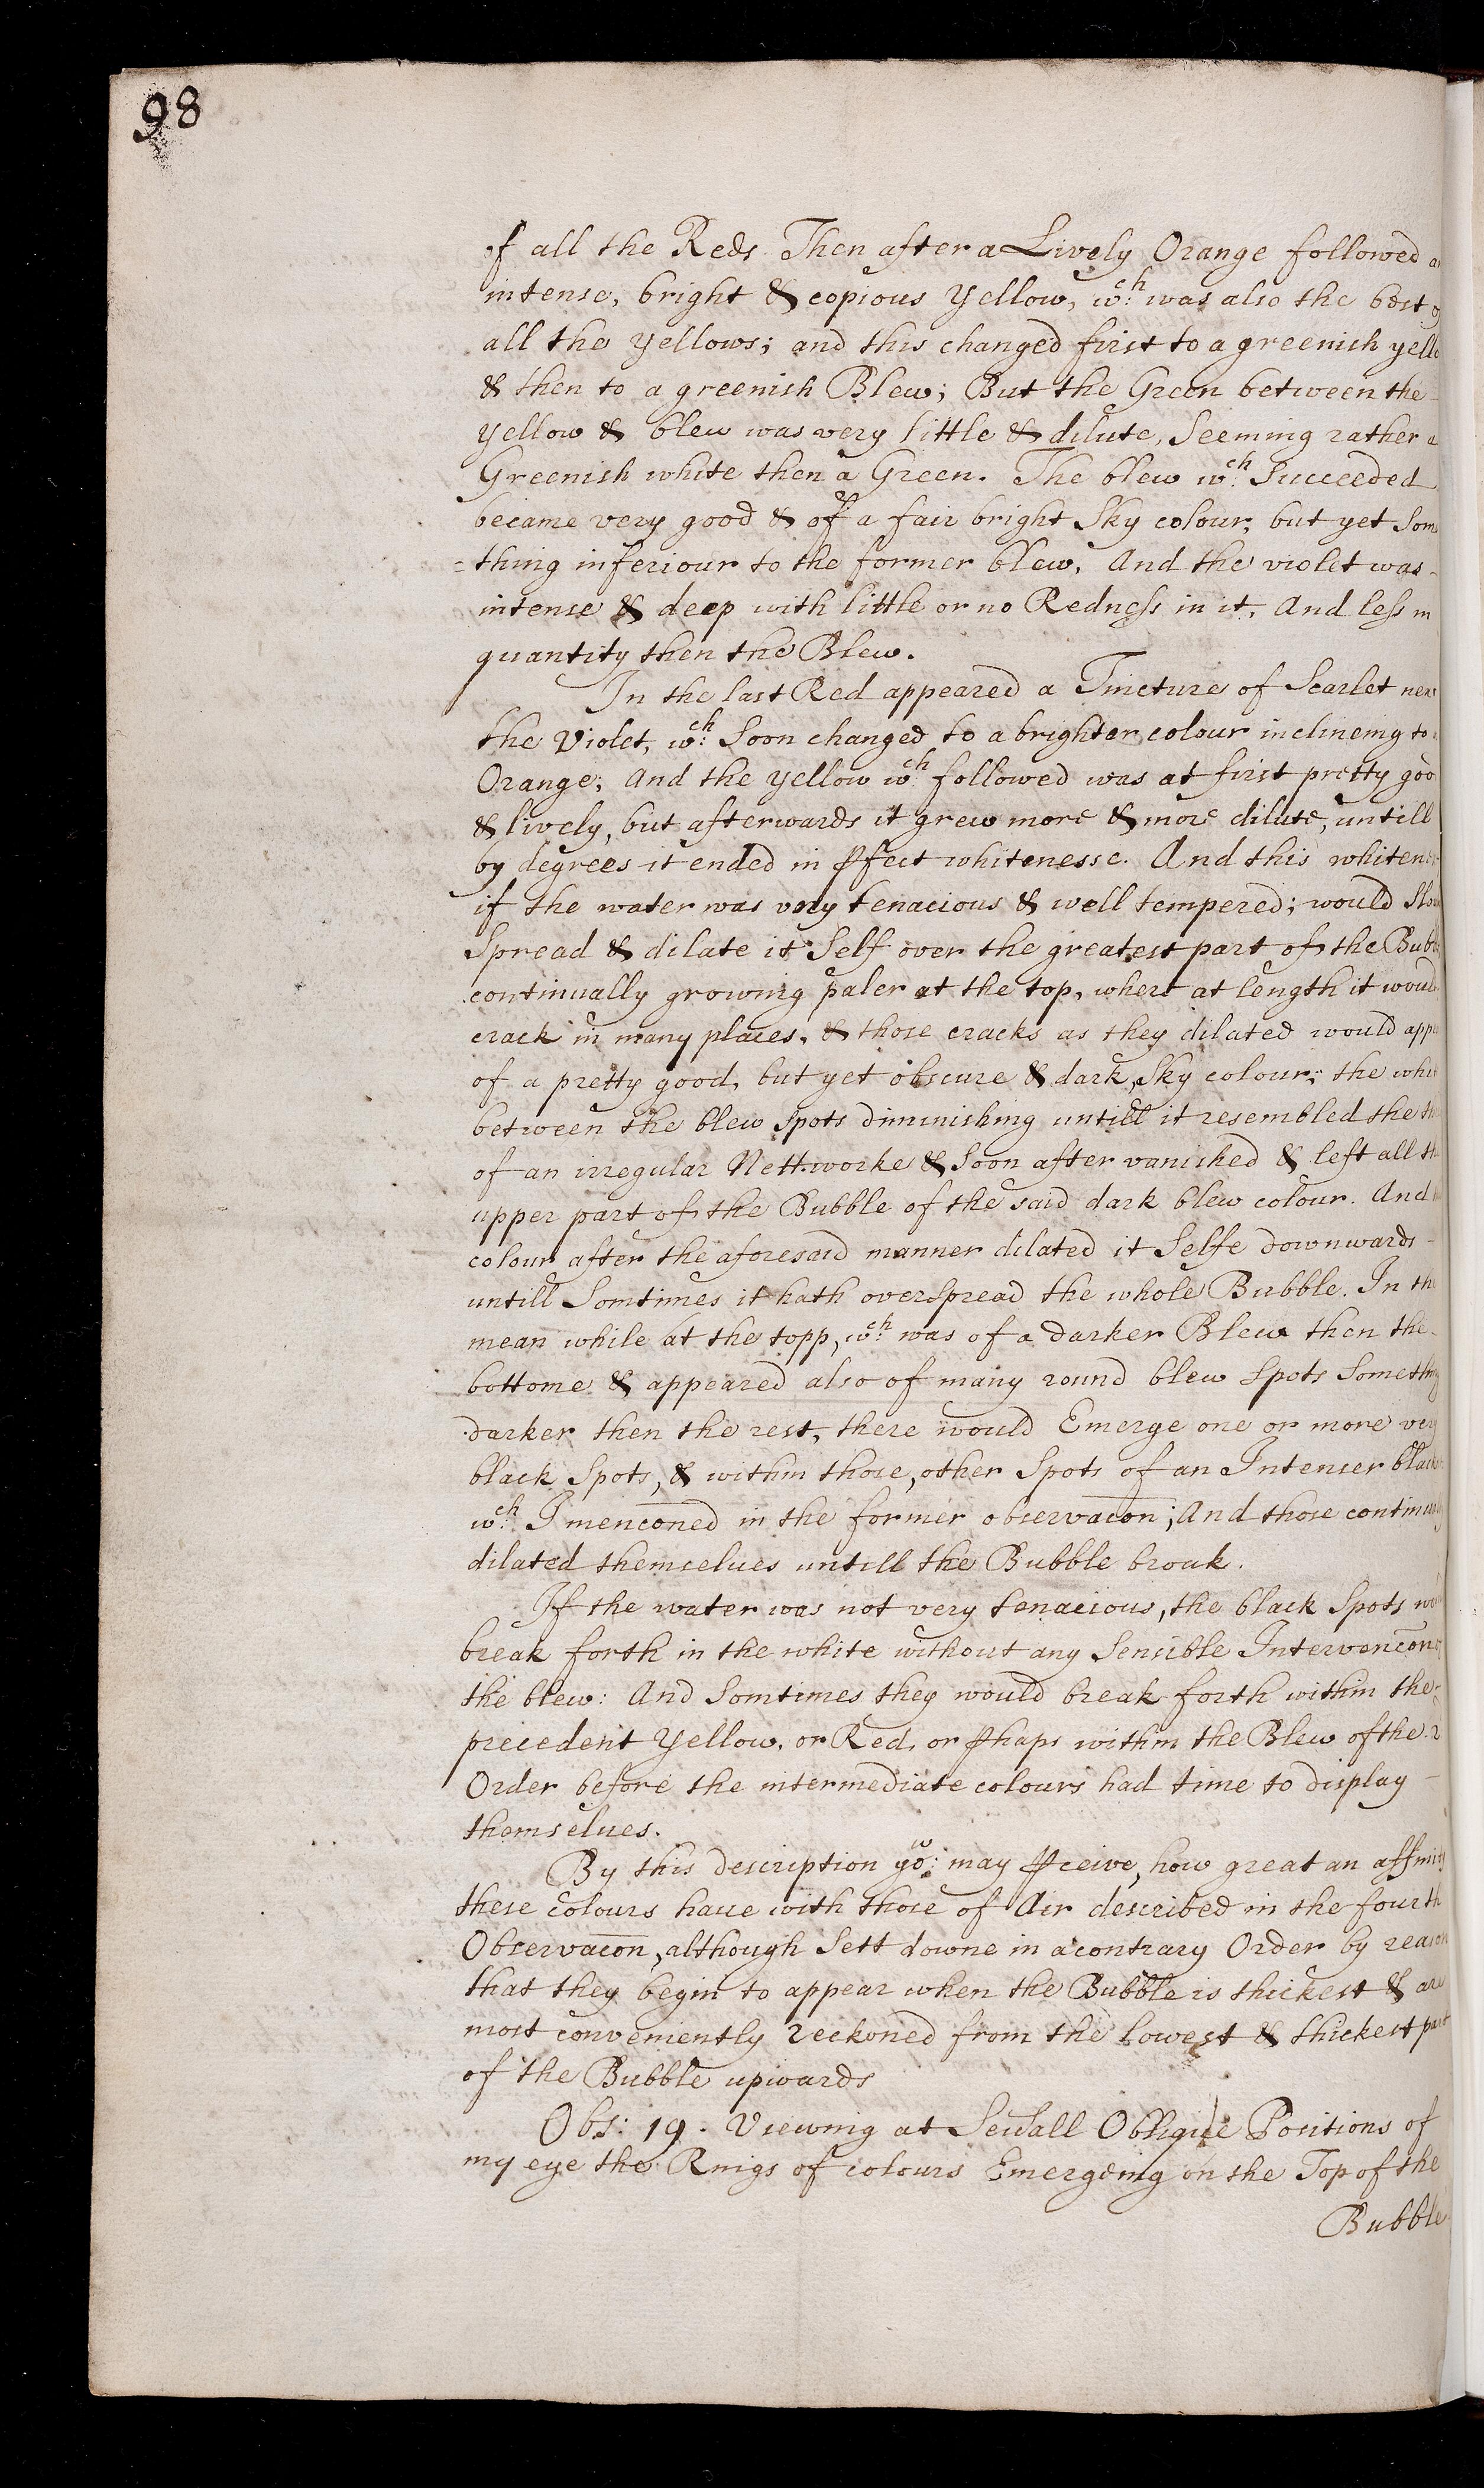 98
of all the Reds Then after a Lively Orange followed
intense, bright & copious Yellow, wch: was also the best
all the Yellows; and this changed first to a greenish yello
& then to a greenish Blew; But the Green between the
Yellow & blew was very little & dilute, Seeming rather a
Greenish white then a Green. The blew wch: Succeeded
became very good & of a fair bright Sky colour, but yet Som
=thing inferiour to the former blew, And the violet was
intense & deep with little or no Redness in it, And less in
quantity then the Blew.
In the last Red appeared a Tincture of Scarlet next
the Violet, wch: Soon changed to a brighter colour inclineing to
Orange; And the yellow wch: followed was at first pretty goo
& lively, but afterwards it grew more & more dilute, untill
by degrees it ended in ꝑfect whitenesse. And this whitene
if the water was very tenacious & well tempered; would Slow
Spread & dilate it Self over the greatest part of the Bubb
continually growing paler at the top, where at length it would
crack in many places, & those cracks as they dilated would appe
of a pretty good, but yet obscure & dark, Sky colour; the whi
between the blew Spots diminishing untill it resembled the th
of an irregular Nettworke & Soon after vanished & left all th
upper part of the Bubble of the said dark blew colour. And
colour after the aforesaid manner dilated it Selfe downwards
untill Somtimes it hath overspread the whole Bubble. In th
mean while at the topp, wch: was of a darker Blew then the
bottome & appeared also of many round blew Spots Something
darker then the rest, there would Emerge one or more very
black Spots, & within those, other Spots of an Intenser black
wch: I mencōned in the former observacōn; And those continu
dilated themselves untill the Bubble broak.
If the water was not very tenacious, the black Spots wo
break forth in the white without any Sensible Intervencōn
the blew: And Somtimes they would break forth within the
precedent Yellow, or Red, or ꝑhaps within the Blew of the 2
Order before the intermediate colours had time to display
themselves.
By this description yow: may ꝑceive, how great an affinity
these colours haue with those of Air described in the fourth
Observacōn, although Sett downe in a contrary Order by reason
that they begin to appear when the Bubble is thickest & are
most conveniently reckoned from the lowest & thickest part
of the Bubble upwards
Obs: 19. Viewing at Seu͠all Oblique Positions of
my eye the Rings of colours Emergeing on the Top of the
Bubble